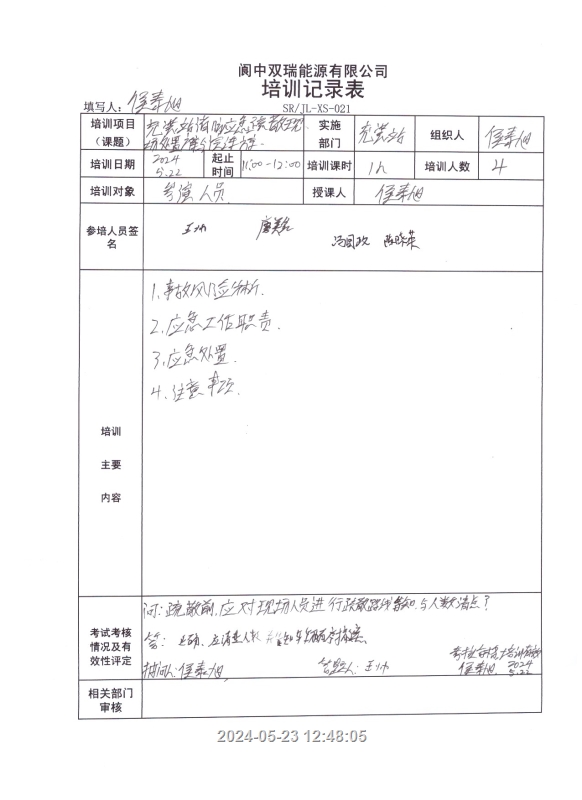 阆中双瑞能源有限公司
培训记录表
填写人：侯素旭
SR/JL-XS-021
培训项目（课题） 充装站消防应急疏散现场处置 实施部门 充装站 组织人 侯素旭
培训日期 2024 5.22 起止时间 11:00-12:00 培训课时 1h 培训人数 4
培训对象 参演人员 授课人 侯素旭
参培人员签名 王帅
培训主要内容
1.事故风险分析.
2.应急工作职责.
3.应急处置.
4.注意事项.
考试考核情况及有效性评定
问:疏散前,应对现场人员进行疏散路线告知与人数清点?
答: 正确,应清查人数
提问人:侯素旭 答题人:王帅
侯素旭 2024 5.22
相关部门审核
2024-05-23 12:48:05